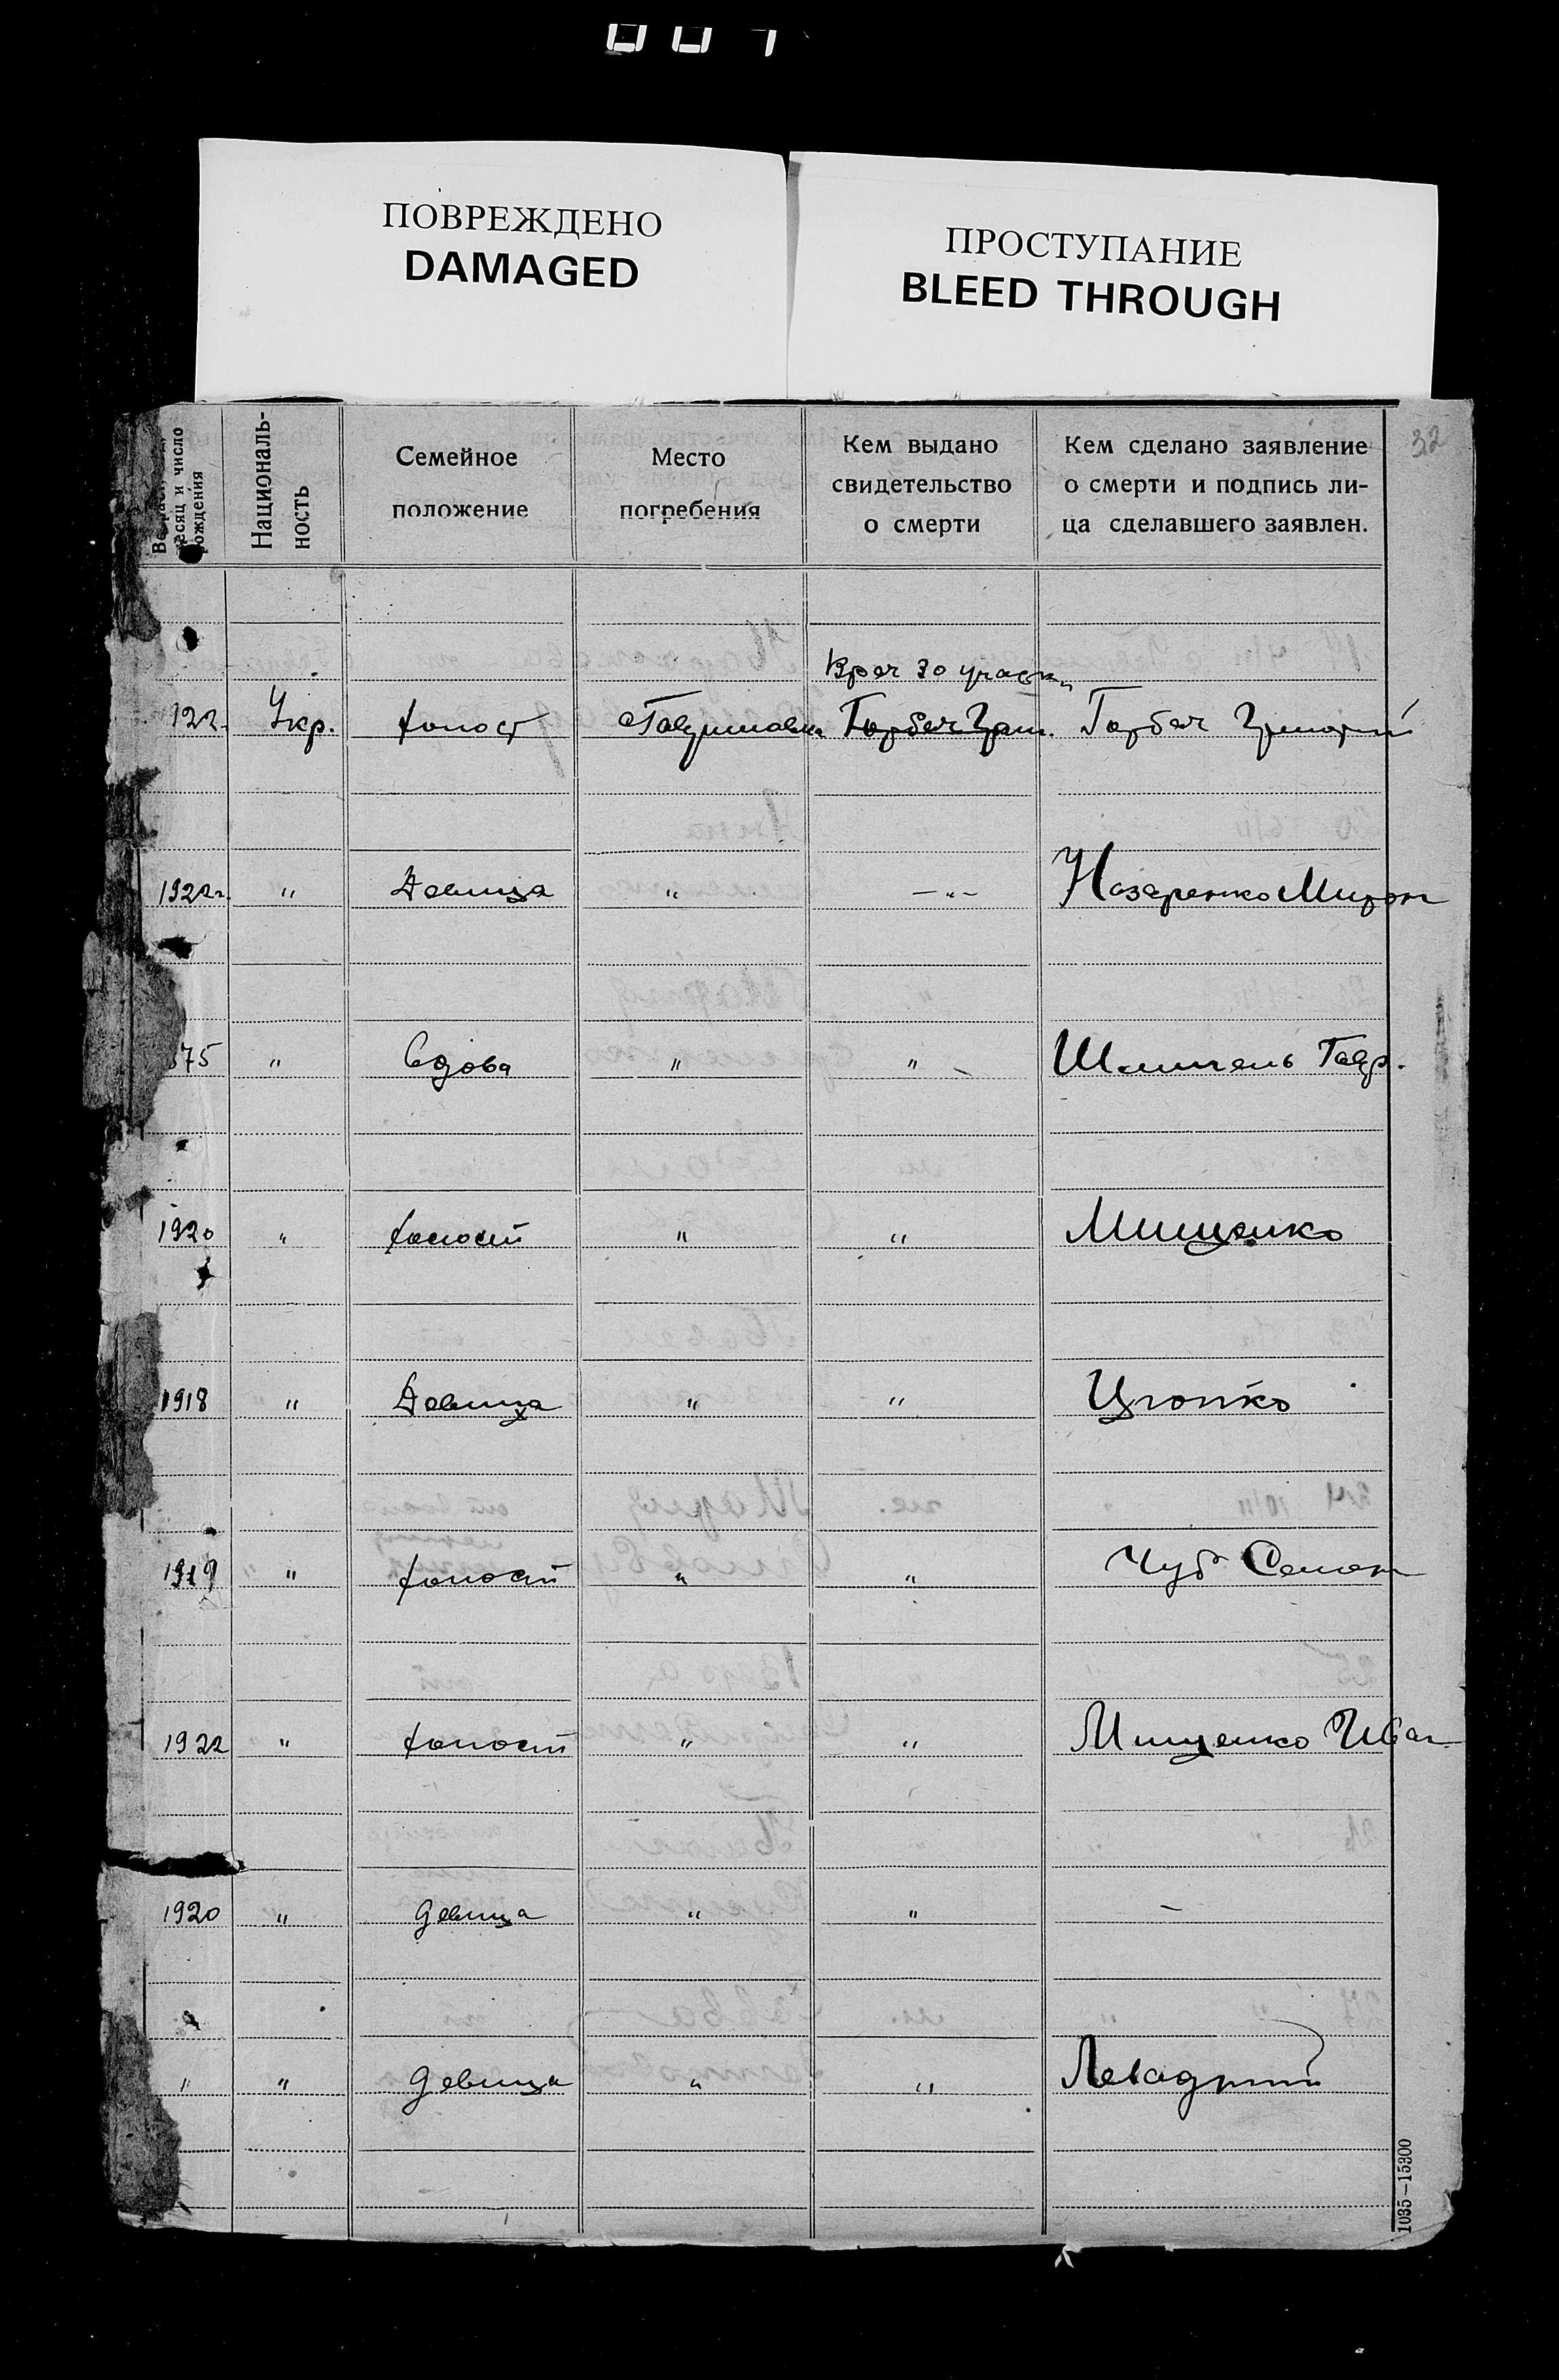 ПОВРЕЖДЕНО
DAMAGED
ПРОСТУПАНИЕ
BLEED THROUGH
32
месяц и число
рождения
Националь-
ность
Семейное
положение
Место
погребения
Кем выдано
свидетельство
о смерти
Кем сделано заявление
о смерти и подпись ли-
ца сделавшего заявлен.
Врач 30 участк
122. Укр. холост Горбач Григ. Горбач Григорий
1922г. " Девица " —"— Назаренко Мирон
75 " Вдова " " Гавр.
1920 " холост " " Мищенко
1918 " Девица " "
1919 " холост " " Чуб Семен
1922 " холост " " Мищенко Иван
1920 " девица " " —
" " девица " " Левадний
1035–15300